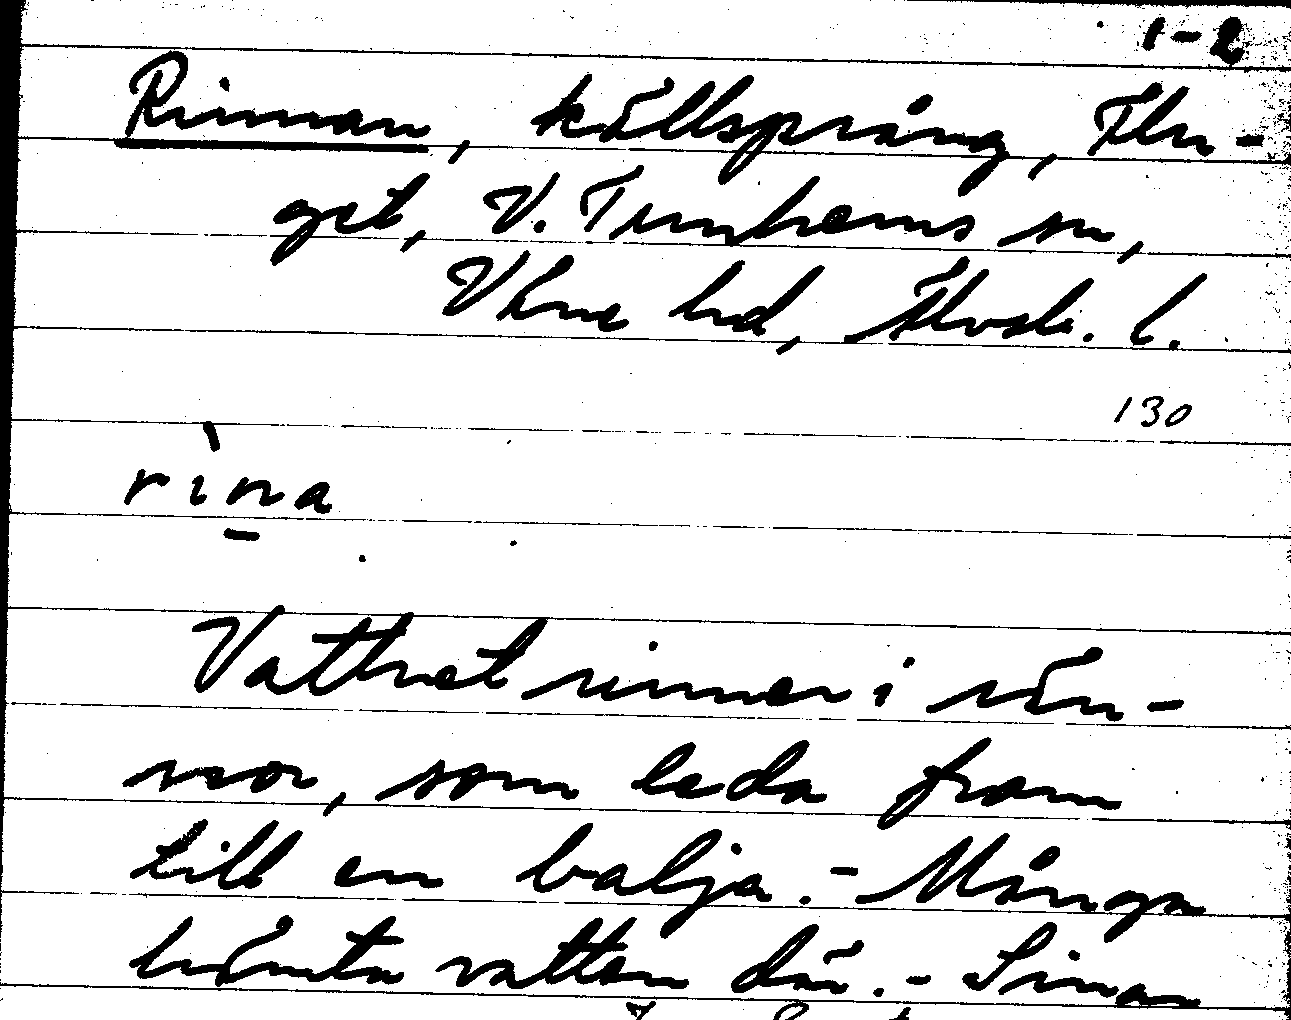 1-2
Rinnan, källsprång, Hu-
get, V. Tunhems sn,
Väne hd, Älvsb. l.
130
rìna
Vattnet rinner i rän-
nor, som leda fram
till en balja. - Många
hämta vatten där. - Sinar